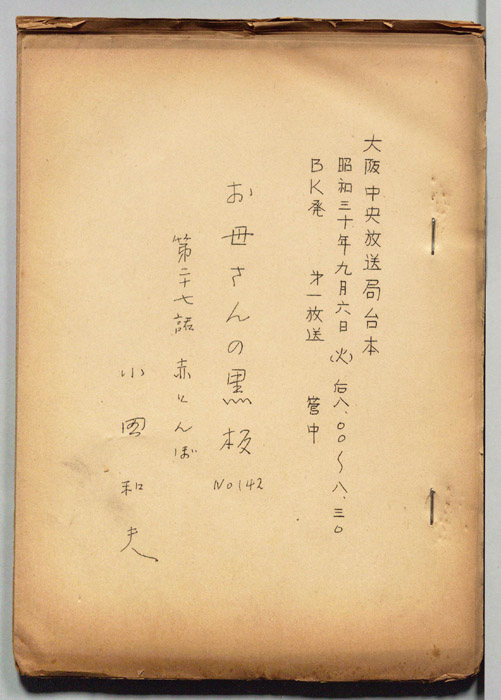 大阪中央放送局台本
昭和三十年九月六日(火)后八.〇〇〜八.三〇
BK発 才一放送 管中
お母さんの黒板 No142
第二十七話 赤とんぼ
小国和夫